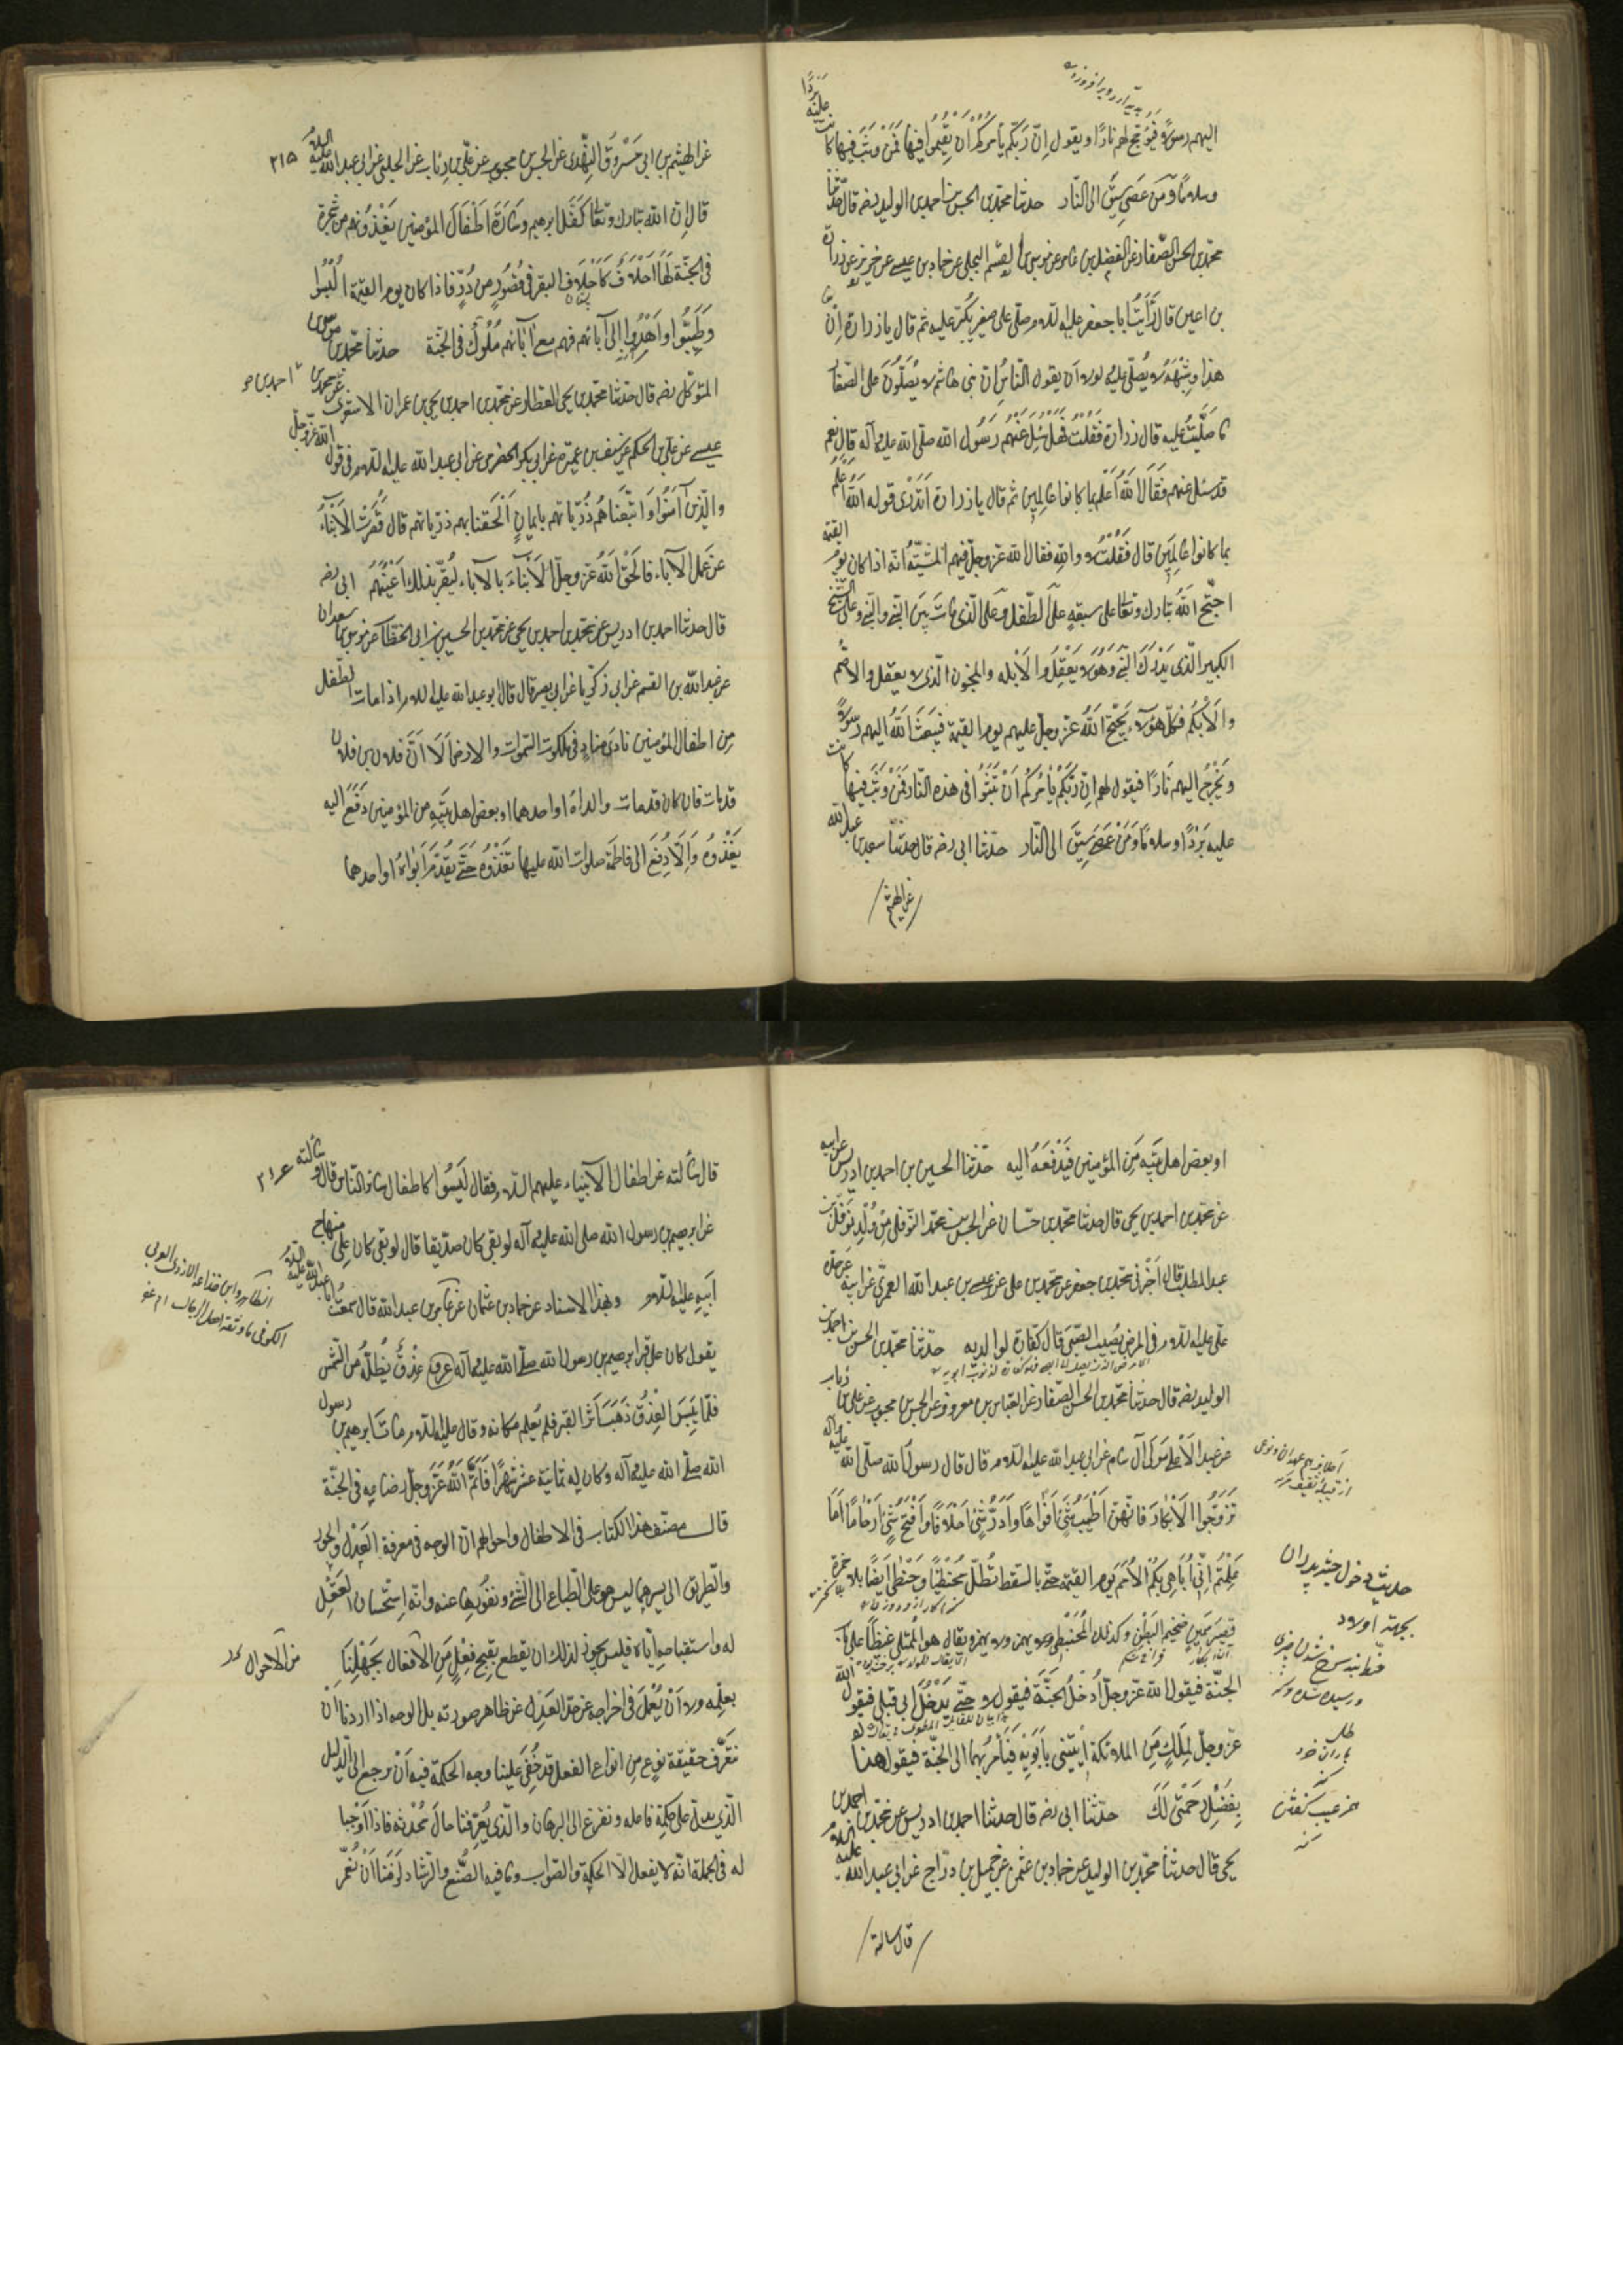 اليهم رسولا فيؤجج لهم نارا ويقول ان ربكم يأمركم ان تقيموا فيها فمن وثب فيها كانت عليه بردا
وسلاما ومن عصى سيق الى النار حدثنا محمد بن الحسن بن احمد بن الوليد رضه قال حدثنا
محمد بن الحسن الصفار عن الفضل بن عامر عن موسى بن القسم البجلي عن حماد بن عيسى عن حريز عن زرارة
بن اعين قال رأيت ابا جعفر عليه السلام صلى على صغير يكبر عليه ثم قال يا زرارة ان
هذا وشبهه لا يصلى عليه لولا ان يقول الناس ان بني هاشم لا يصلون على الصغار
ما صليت عليه قال زرارة فقلت فهل سئل عنهم رسول الله صلى الله عليه وآله قال نعم
قد سئل عنهم فقال الله اعلم بما كانوا عاملين ثم قال يا زرارة اتدري قوله الله اعلم
بما كانوا عاملين قال فقلت لا والله فقال لله عز وجل فيهم المشية انه اذا كان يوم القيمة
احتج الله تبارك وتعالى على سبعة على الطفل وعلى الذي مات بين النبي والنبي وعلى الشيخ
الكبير الذي يدرك النبي وهو لا يعقل والابله والمجنون الذي لا يعقل والاصم
والابكم فكل هؤلاء يحتج الله عز وجل عليهم يوم القيمة فيبعث الله اليهم رسولا
ويخرج اليهم نارا فيقول لهم ان ربكم يأمركم ان تثبوا في هذه النار فمن وثب فيها كانت
عليه بردا وسلاما ومن عصى سيق الى النار حدثنا ابي رضه قال حدثنا سعد بن عبد الله
عن الهيثم
٢١٥
عن الهيثم بن ابي مسروق النهدي عن الحسن بن محبوب عن علي بن رئاب عن الحلبي عن ابي عبد الله عليه السلام
قال ان الله تبارك وتعالى كفل ابرهيم وسارة اطفال المؤمنين يغذونهم من شجرة
في الجنة لها اخلاف كاخلاف البقر في قصور من در فاذا كان يوم القيمة البسوا
وطيبوا واهدوا الى آبائهم فهم مع آبائهم ملوك في الجنة حدثنا محمد بن موسى بن
المتوكل رضه قال حدثنا محمد بن يحيى العطار عن محمد بن احمد بن يحيى بن عمران الاشعري عن محمد بن
عيسى عن علي بن الحكم عن سيف بن عميرة عن ابي بكر الحضرمي عن ابي عبد الله عليه السلام في قول الله عز وجل
والذين آمنوا واتبعناهم ذرياتهم بايمان الحقنا بهم ذرياتهم قال قصرت الابناء
عن عمل الآباء فالحق الله عز وجل الابناء بالآباء ليقر بذلك اعينهم ابي رضه
قال حدثنا احمد بن ادريس عن محمد بن احمد بن يحيى عن محمد بن الحسين بن ابي الخطاب عن موسى بن سعدان
عن عبد الله بن القسم عن ابي زكريا عن ابي بصير قال قال ابو عبد الله عليه السلام اذا مات الطفل
من اطفال المؤمنين نادى مناد في ملكوت السموات والارض الا ان فلان بن فلان
قد مات فان كان قد مات والداه او احدهما او بعض اهل بيته من المؤمنين دفع اليه
يغذوه والا دفع الى فاطمة صلوات الله عليها تغذوه حتى يقدم ابواه او احدهما
او بعض اهل بيته من المؤمنين فيدفعه اليه حدثنا الحسين بن احمد بن ادريس عن ابيه
عن محمد بن احمد بن يحيى قال حدثنا محمد بن حسان عن الحسين بن محمد النوفلي من ولد نوفل بن
عبد المطلب قال اخبرني محمد بن جعفر عن محمد بن علي عن عيسى بن عبد الله العمري عن ابيه عن جده
علي عليه السلام في المرض يصيب الصبي قال كفارة لوالديه حدثنا محمد بن الحسن بن احمد بن
الوليد رضه قال حدثنا محمد بن الحسن الصفار عن العباس بن معروف عن الحسن بن محبوب عن علي بن رئاب
عن عبد الاعلى مولى آل سام عن ابي عبد الله عليه السلام قال قال رسول الله صلى الله عليه وآله
تزوجوا الابكار فانهن اطيب شئ افواها وادر شئ اخلافا وافتح شئ ارحاما اما
علمتم اني اباهي بكم الامم يوم القيمة حتى بالسقط يظل محبنطيا
الجنة فيقول الله عز وجل ادخل الجنة فيقول لا حتى يدخل ابي قبلي فيقول الله
عز وجل لملك من الملائكة ايتني بابويه فيأمر بهما الى الجنة فيقول هذا
بفضل رحمتي لك حدثنا ابي رضه قال حدثنا احمد بن ادريس عن محمد بن احمد بن
يحيى قال حدثنا محمد بن الوليد عن حماد بن عثمن عن جميل بن دراج عن ابي عبد الله عليه السلام
قال سالته
قال سألته عن اطفال الانبياء عليهم السلام فقال ليسوا كاطفال سائر الناس قال وسألته
عن ابرهيم بن رسول الله صلى الله عليه وآله لو بقي كان صديقا قال لو بقي كان على منهاج
ابيه عليه السلام وبهذا الاسناد عن حماد بن عثمان عن عامر بن عبد الله قال سمعت ابا عبد الله عليه السلام
يقول كان على قبر ابرهيم بن رسول الله صلى الله عليه وآله عذق يظله من الشمس
فلما يبس العذق ذهب اثر القبر فلم يعلم مكانه وقال عليه السلام مات ابرهيم بن رسول
الله صلى الله عليه وآله وكان له ثمانية عشر شهرا فاتم الله عز وجل رضاعه في الجنة
قال مصنف هذا الكتاب في الاطفال واحوالهم ان الوجه في معرفة العدل والجور
والطريق الى تميزهما ليس هو ميل الطباع الى الشئ ونفورها عنه وانه استحسان العقل
له واستقباحه اياه فليس يجوز لذلك ان يقطع بقبح فعل من الافعال بجهلنا
بعلله ولا ان يعمل في اخراجه عن حد العدل عن ظاهر صورته بل الوجه اذا اردنا ان
نعرف حقيقة نوع من انواع الفعل قد خفي علينا وجه الحكمة فيه ان نرجع الى الدليل
الذي يدل على حكمة فاعله ونفزع الى البرهان والذي يعرفنا حال محدثه فاذا اوجبنا
له في الجملة انه لا يفعل الا الحكمة والصواب وما فيه الصنع والرشاد لزمنا ان نعم